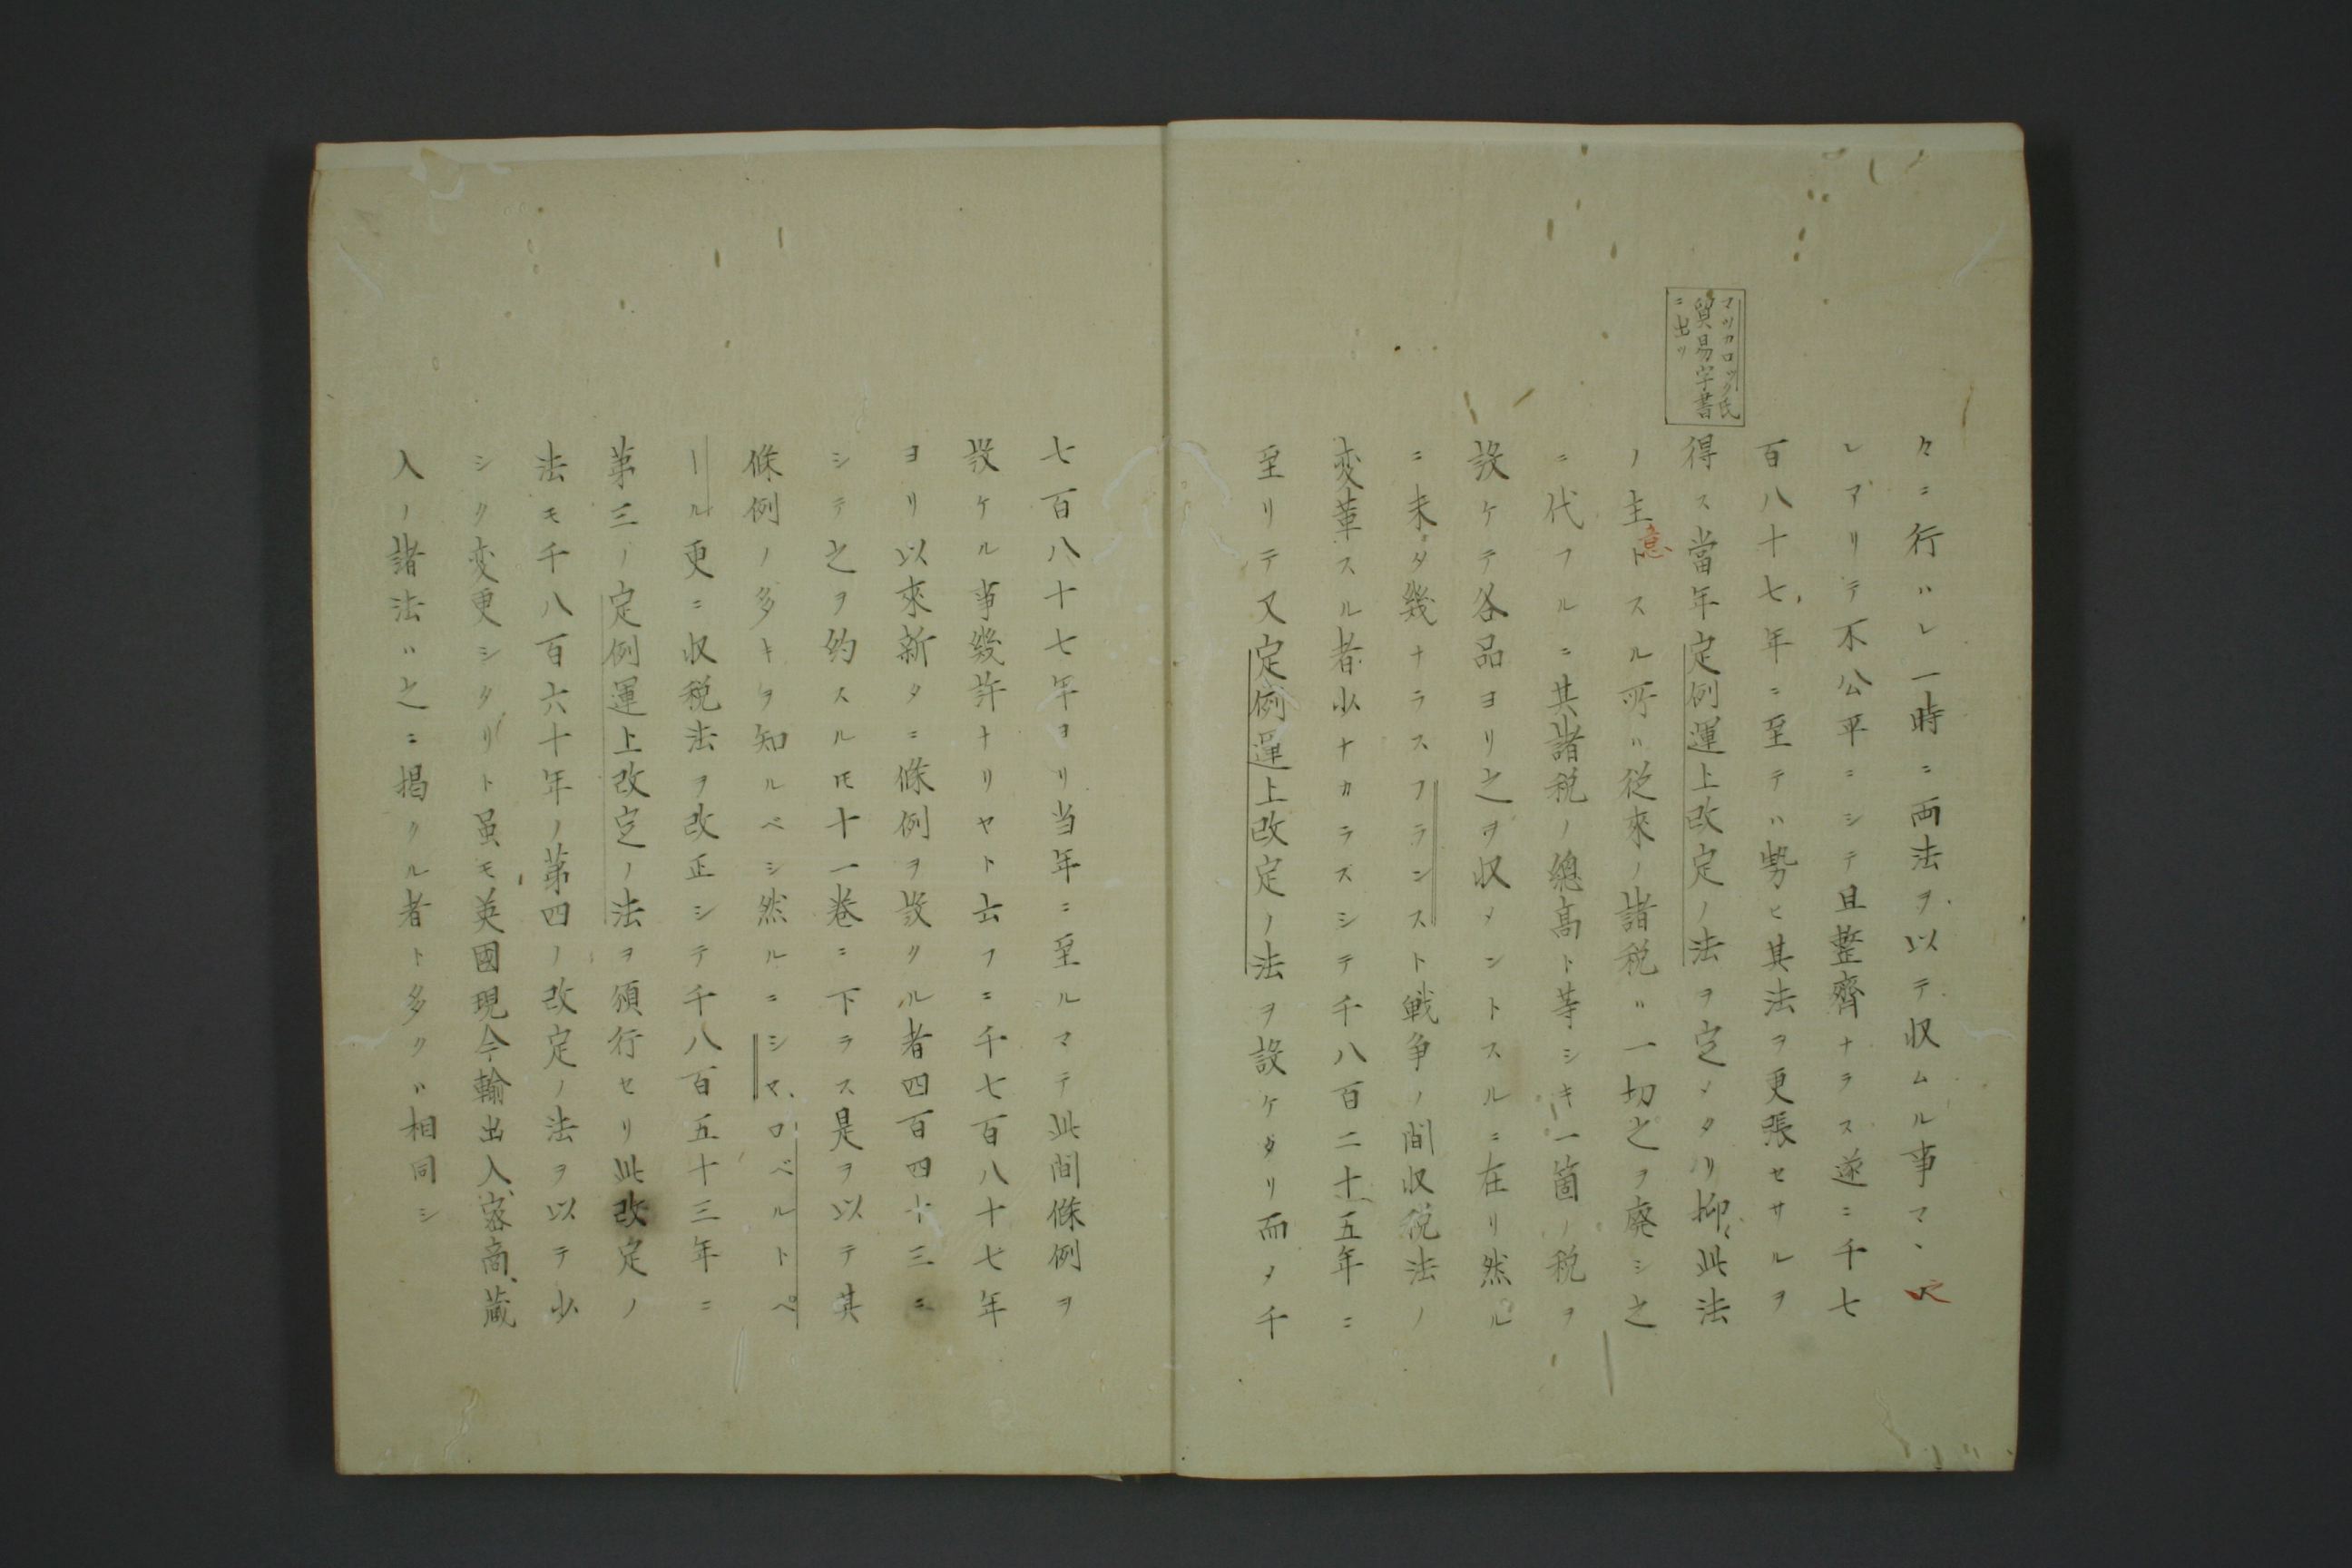 マツカロック氏
貿易字書
ニ出ツ
々ニ行ハレ一時ニ両法ヲ以テ収ムル事マヽ
レアリテ不公平ニシテ且整齊ナラス遂ニ千七
百八十七年ニ至テハ勢ヒ其法ヲ更張セサルヲ
得ス當年定例運上改定ノ法ヲ定メタリ抑此法
ノ主意トスル所ハ従來ノ諸税ハ一切之ヲ廃シ之
ニ代フルニ其諸税ノ總高ト等シキ一箇ノ税ヲ
設ケテ各品ヨリ之ヲ収メントスルニ在リ然ル
ニ未タ幾ナラスフランスト戦争ノ間収税法ノ
変革スル者少ナカラスシテ千八百二十五年ニ
至リテ又定例運上改定ノ法ヲ設ケタリ而メ千
七百八十七年ヨリ当年ニ至ルマテ此間條例ヲ
設ケル事幾許ナリヤト云フニ千七百八十七年
ヨリ以來新タニ條例ヲ設クル者四百四十三ニ
シテ之ヲ約スルモ十一巻ニ下ラス是ヲ以テ其
條例ノ多キヲ知ルベシ然ルニシマ、ロベルトペ
ール更ニ収税法ヲ改正シテ千八百五十三年ニ
第三ノ定例運上改定ノ法ヲ頒行セリ此改定ノ
法モ千八百六十年ノ第四ノ改定ノ法ヲ以テ少
シク変更シタリト虽モ英國現今輸出入、密商、蔵
入ノ諸法ハ之ニ掲クル者ト多クハ相同シ